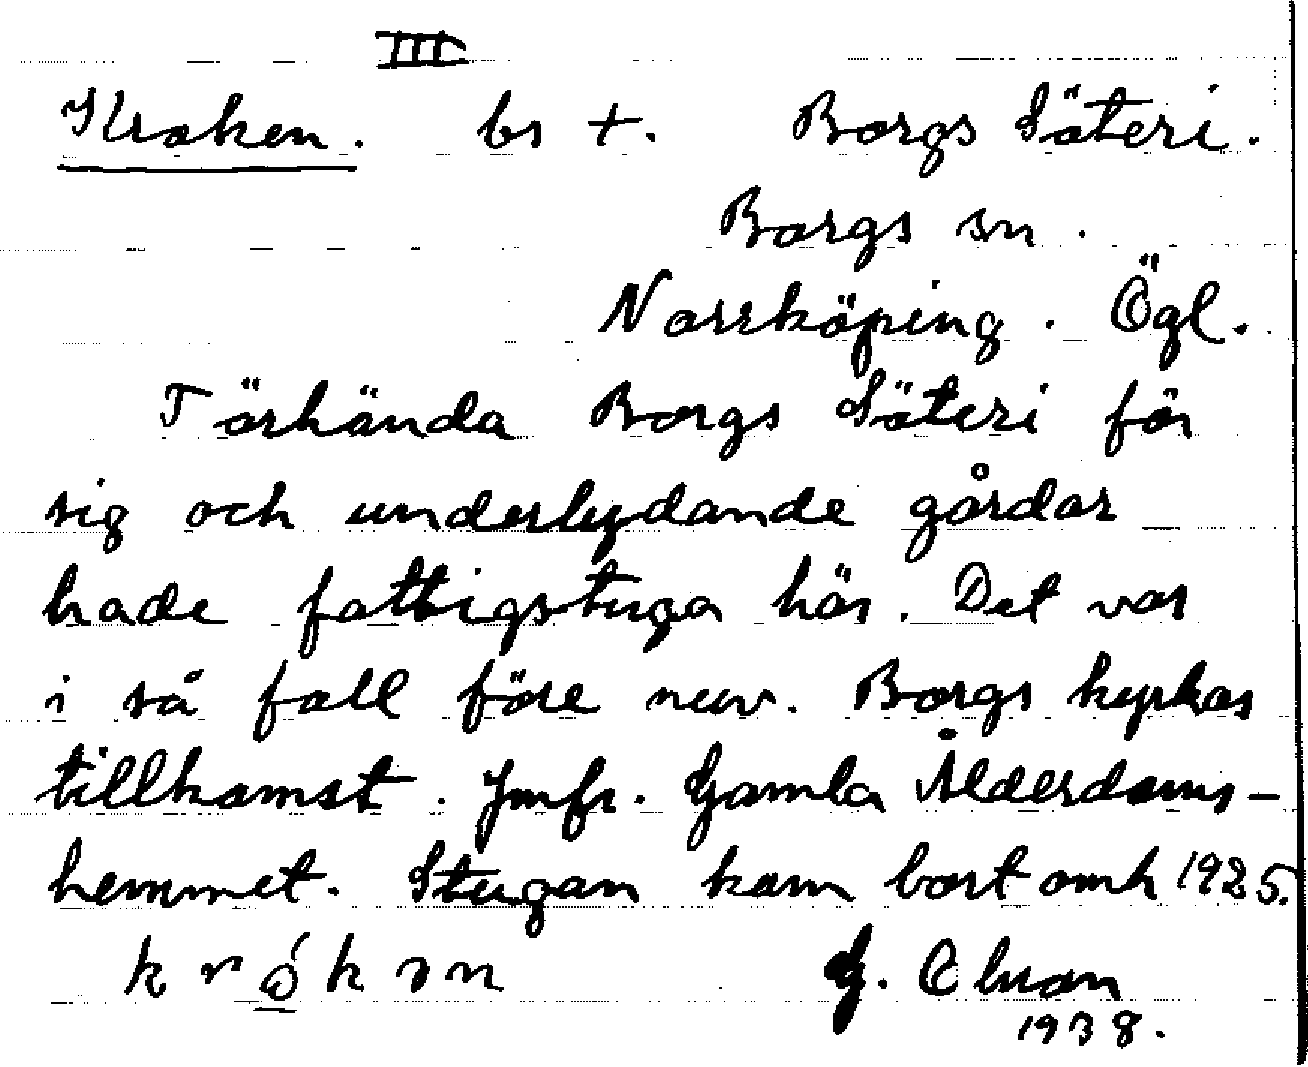 III
Kroken. bs +. Borgs Säteri.
Borgs sn.
Norrköping. Ögl.
Törhända Borgs Säteri för
sig och underlydande gårdar
hade fattigstuga här. Det var
i så fall före nuv. Borgs kyrkas
tillkomst. Jmfr. Gamla Ålderdoms-
hemmet. Stugan kom bort omk 1925.
krókən G.
1938.